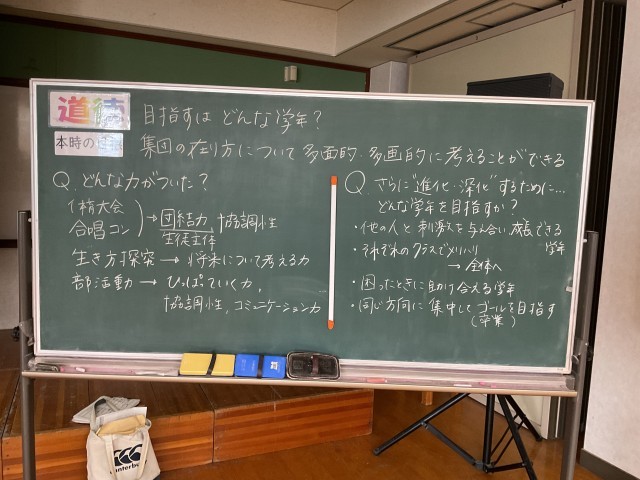 道徳
目指すは どんな学年?
本時の目標
集団の在り方について 多面的・多画的に考えることができる
Q. どんな力がついた?
体育大会
合唱コン
→ 団結力 協調性
生徒主体
生き方探究 → 将来について考える力
部活動 → ひっぱっていく力,
協調性, コミュニケーション力
Q. さらに"進化・深化"するために…
どんな学年を目指すか?
・他の人と刺激を与え合い成長できる
学年
・それぞれのクラスでメリハリ
→ 全体へ
・困ったときに助け合える学年
・同じ方向に集中してゴールを目指す
(卒業)